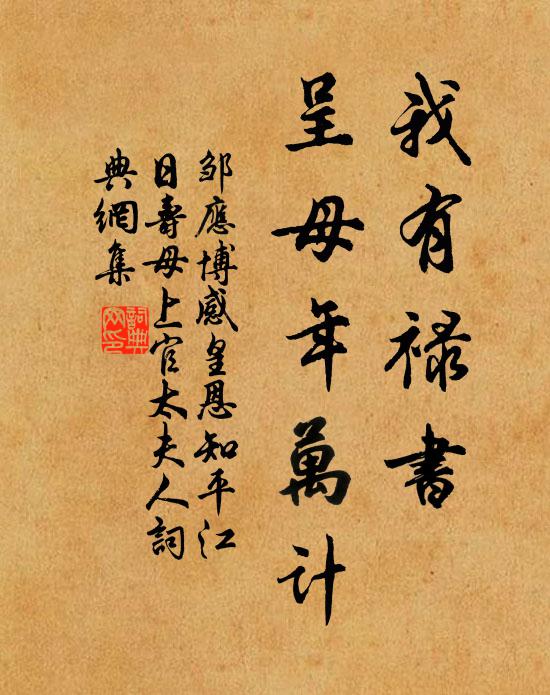 我有禄書
呈母年萬計
邹應博感皇恩知平江
日壽母上官太夫人詞
典網集
詞典網印